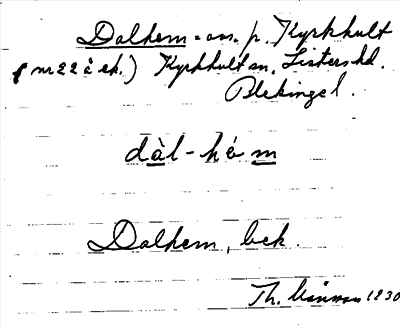 Dalhem - avs. p. Kyrkhult
(nr 22 å ek.) Kyrkhult sn, Listers hd.
Blekinge l.
dàl-hém
Dalhem, bek.
Th. 1930